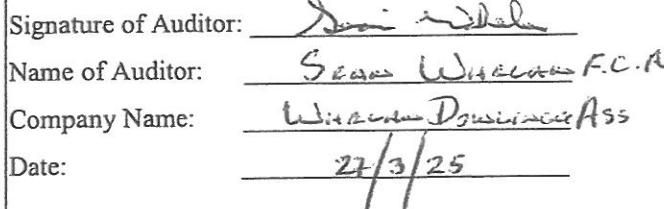 Signature of Auditor:
Name of Auditor: Sean Whelan F.C.A
Company Name: Whelan Dowling Ass
Date: 27/3/25